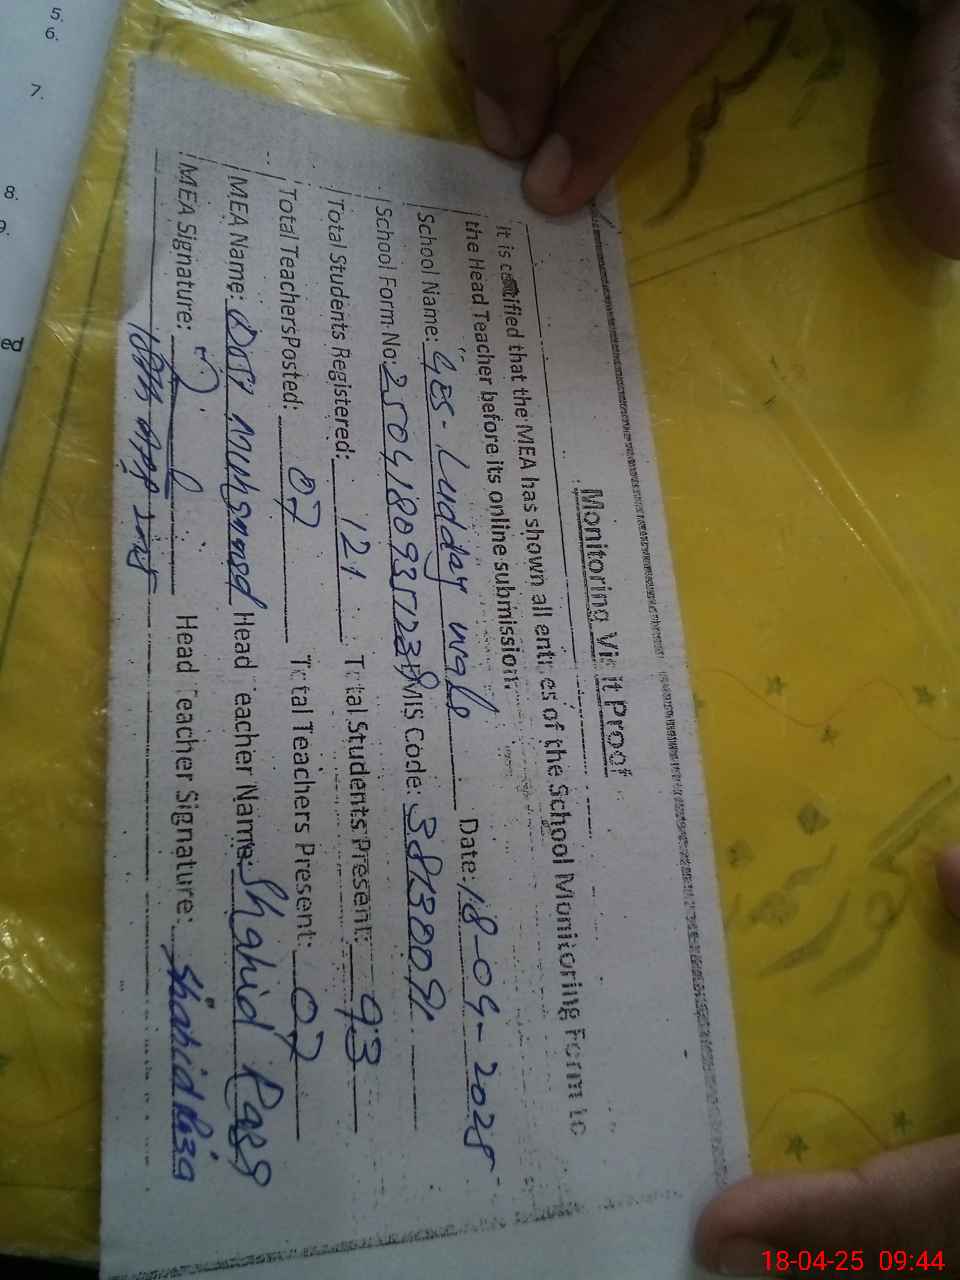 Monitoring Visit Proof
It is certified that the MEA has shown all entries of the School Monitoring Form to
the Head Teacher before its online submission.
School Name: GES - Ludday wala Date: 18-04-2025
School Form No: 2504180937238 EMIS Code: 38130091
Total Students Registered: 121 Total Students Present: 93
Total Teachers Posted: 07 Total Teachers Present: 07
MEA Name: Muhammad Head Teacher Name: Shahid Raza
MEA Signature: Head Teacher Signature: Shahid Raza
5.
6.
7.
8.
9.
ed
18-04-25 09:44